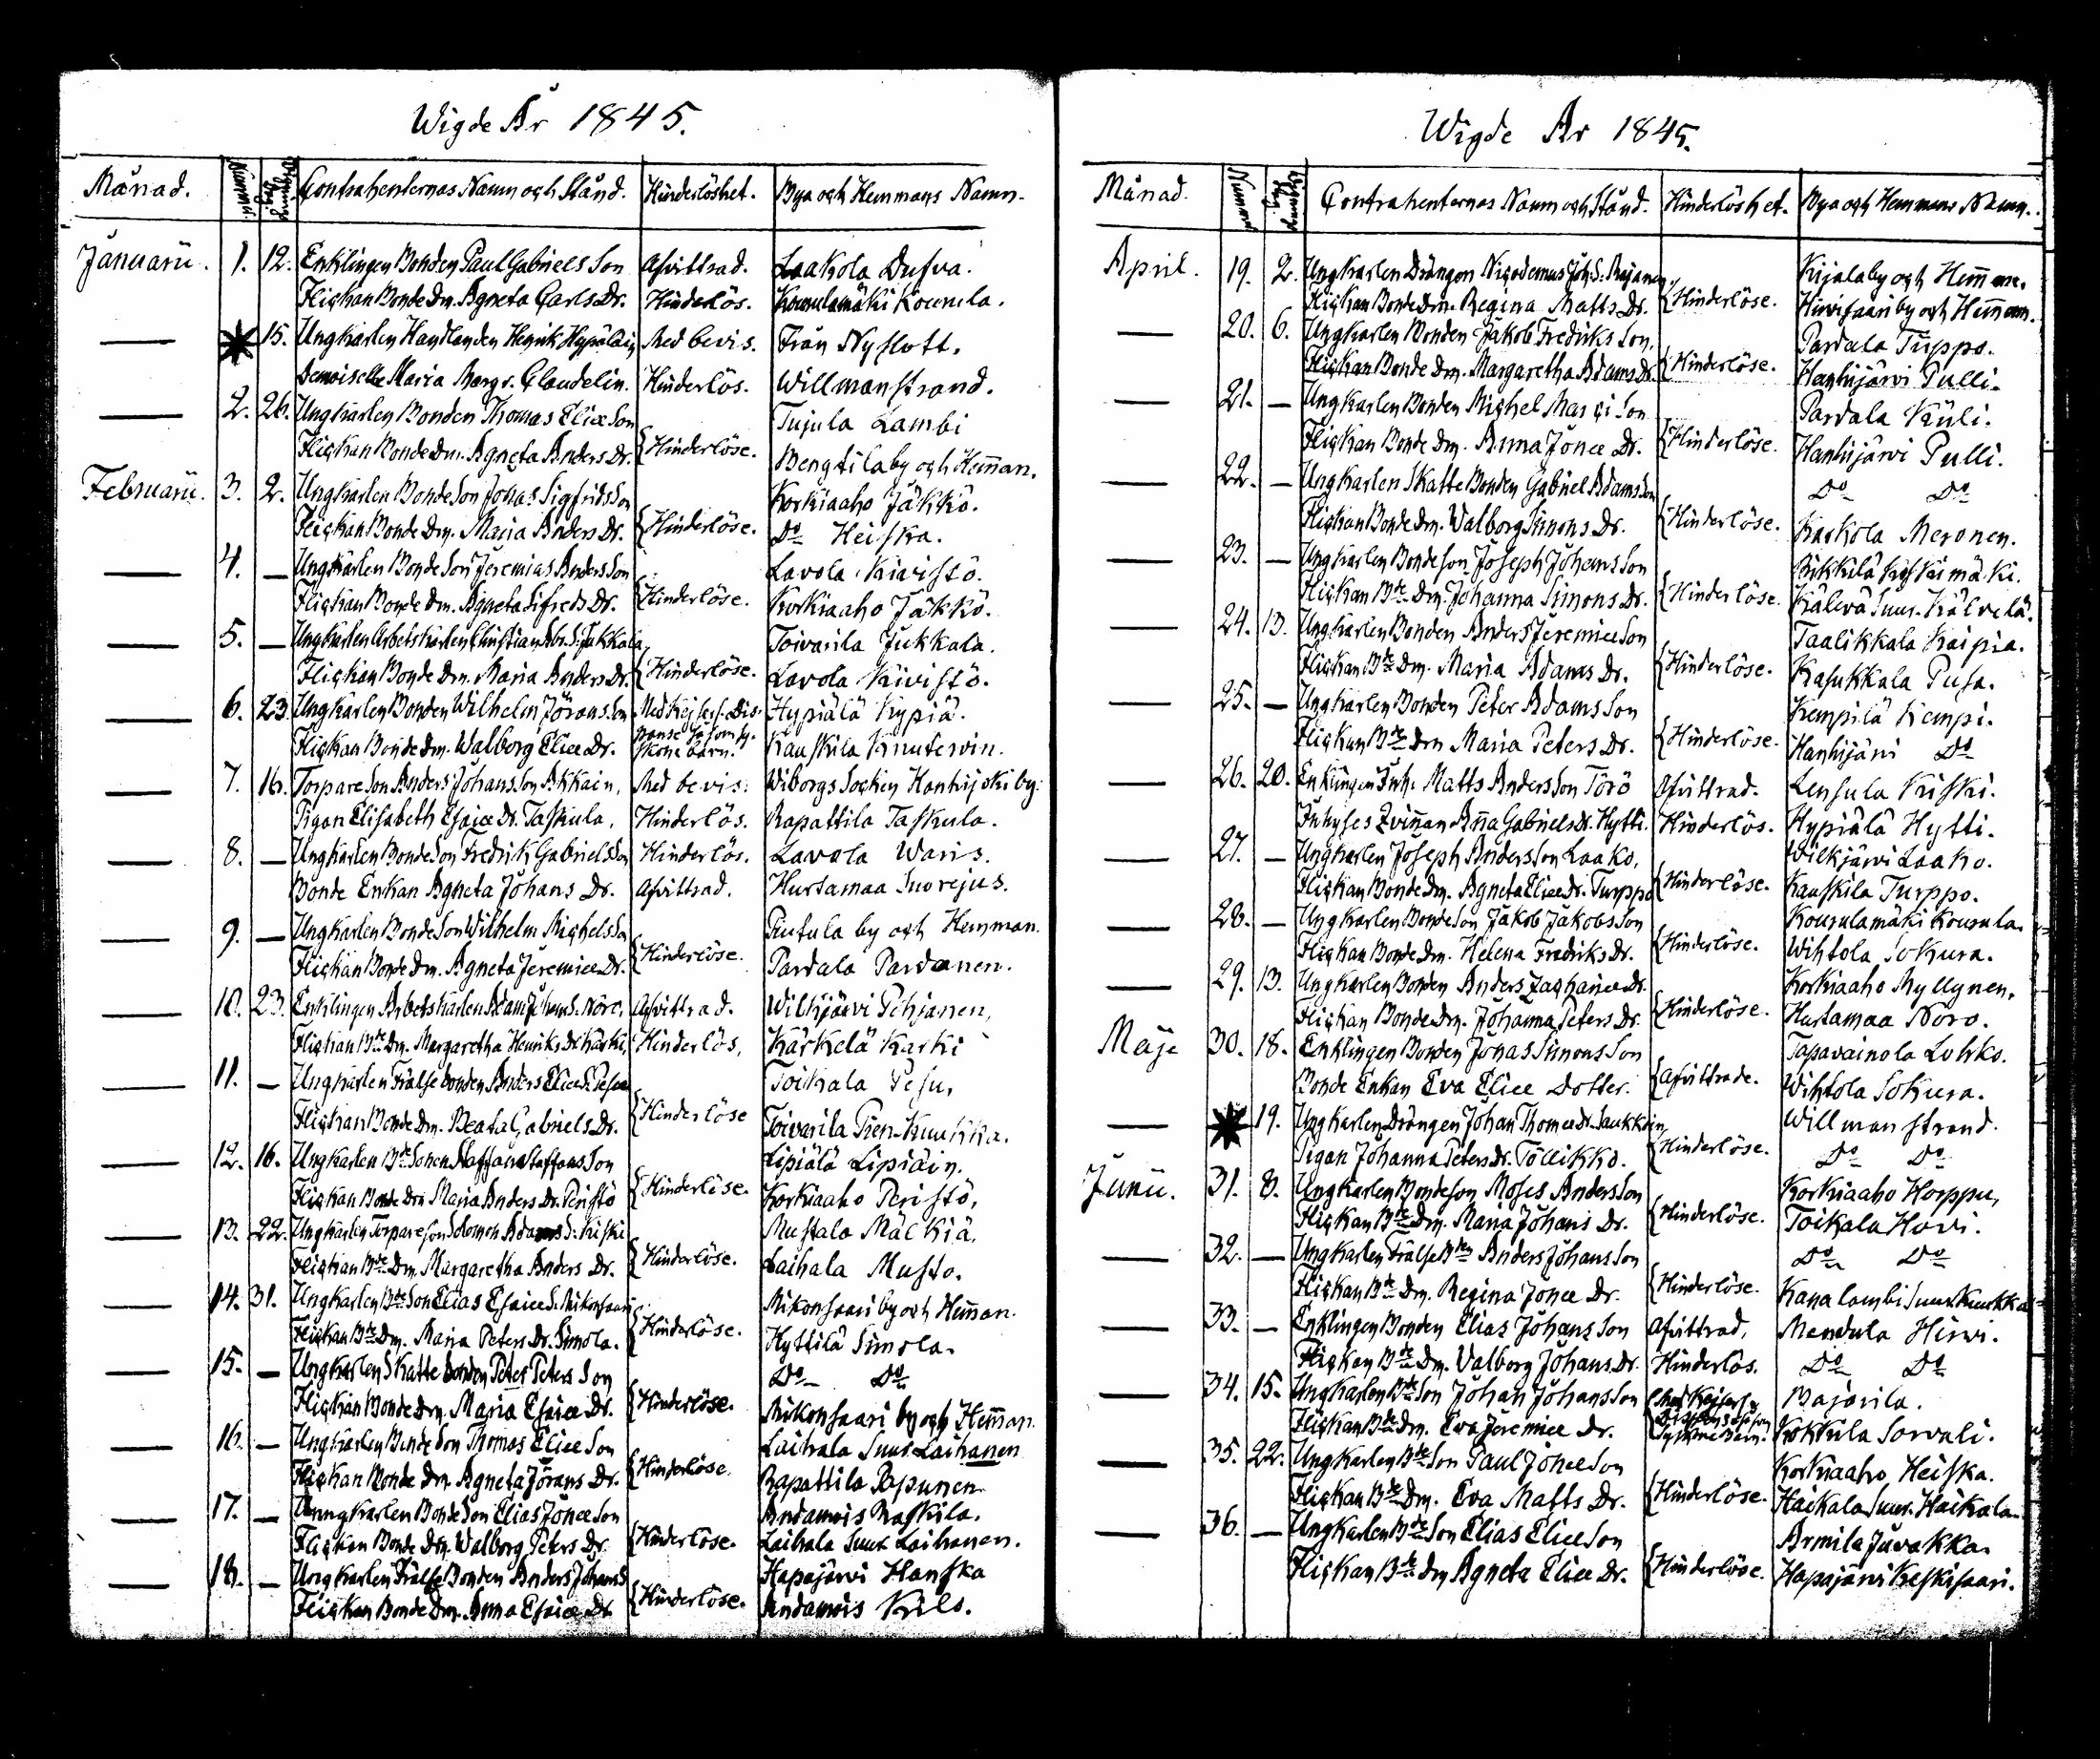 Wigde År 1845.
Månad. Nummer. Vignings dag. Contrahenternas Namn och Stånd. Hinderlöshet. Bya och Hemmans Namn.
Januarii. 1. 12. Enklingen Bonden Paul Gabriels Son Afvittrad. Laakola Dufva.
Flickan Bonde Dm. Agneta Carls Dr. Hinderlös. Kounulamäki Kounula.
— * 15. Ungkarlen Handlanden Henrik Med bevis. Från Nyslott.
Demoiselle Maria Margr. Claudelin. Hinderlös. Willmanstrand.
— 2. 26. Ungkarlen Bonden Thomas Eliæ Son Tujula Lambi
Flickan Bonde Dm. Agneta Anders Dr. { Hinderlöse. Bengtila by och Hemman.
Februarii. 3. 2. Ungkarlen Bonde Son Johas Sigfrids Son Korkiaaho Jäkkö.
Flickan Bonde Dm. Maria Anders Dr. { Hinderlöse. Do Heiska.
— 4. — Ungkarlen Bonde Son Jeremias Anders Son Lavola Kivistö.
Flickan Bonde Dm. Agneta Sifreds Dr. { Hinderlöse. Korkiaaho Jäkkö.
— 5. — Ungkarlen Arbetskarlen Christian Abr. S. Jukkala, Toivarila Jukkala.
Flickan Bonde Dm. Maria Anders Dr. { Hinderlöse. Lavola Kivistö.
— 6. 23. Ungkarlen Bonden Wilhelm Jörans Son Med Kejserl. Dis- Hypiälä Hypiä.
pense såsom sy-
Flickan Bonde Dm. Walborg Eliæ Dr. skone barn. Kauskila Knutinin.
— 7. 16. Torpare Son Anders Johans Son Akkain, Med bevis. Wiborgs Socken Hanhijoki by.
Pigan Elisabeth Esaiæ Dr. Taskula, Hinderlös. Rapattila Taskula.
— 8. — Ungkarlen Bonde Son Fredrik Gabriels Son Hinderlös. Lavola Waris.
Bonde Enkan Agneta Johans Dr. Afvittrad. Hurtamaa Suorejus.
— 9. — Ungkarlen Bonde Son Wilhelm Michels Son Pintula by och Hemman.
Flickan Bonde Dm. Agneta Jeremiæ Dr. { Hinderlöse. Pardala Pardanen.
— 10. 23. Enklingen Arbetskarlen Adam Johans S. Noro, Afvittrad. Wilkjärvi Pehjanen,
Flickan Bde Dm. Margaretha Henriks Dr Kärki, Hinderlös, Kärkelä Karki
— 11. — Ungkarlen Frälse bonden Anders Eliæ S. Pesu Toikala Pesu,
Flickan Bonde Dm. Beata Gabriels Dr. { Hinderlöse Toivarila Pien-Kuukka.
— 12. 16. Ungkarlen Bde Sonen Staffan Staffans Son Lipiälä Lipiäin.
Flickan Bonde Dm Maria Anders Dr. Peristö { Hinderlöse. Korkiaaho Peristö,
— 13. 22. Ungkarlen Torpare son Solomon Adams S. Kiski Mustala Mälkiä,
Flickan Bde Dm. Margaretha Anders Dr. { Hinderlöse. Laihala Musto.
— 14. 31. Ungkarlen Bde Son Elias Esaiæ S. Mikonsaari Mikonsaari by och Hemman.
Flickan Bde Dm. Maria Peters Dr. Simola. { Hinderlöse. Hyttilä Simola.
— 15. — Ungkarlen Skatte bonden Peter Peters Son Do Do
Flickan Bonde Dm. Maria Esaiæ Dr. { Hinderlöse. Mikonsaari by och Hemman.
— 16. — Ungkarlen Bonde Son Thomas Eliæ Son Laihala Suur Laihanen
Flickan Bonde Dm. Agneta Jörans Dr. { Hinderlöse. Rapattila Papunen.
— 17. — Unngkarlen Bonde Son Elias Jonæ Son Andamois Raskila.
Flickan Bonde Dm. Walborg Peters Dr { Hinderlöse. Laihala Suur Laihanen.
— 18. — Ungkarlen Frälse Bonden Anders Johans S Hapajärvi Hanska
Flickan Bonde Dm. Anna Esaiæ Dr { Hinderlöse. Andamois Kilo.
Wigde År 1845.
Månad. Nummer Vignings dag. Contrahenternas Namn och Stånd. Hinderlöshet. Bya och Hemmans Namn.
April. 19. 2. Ungkarlen Drängen Nicodemus Joh. S. Kijalaby och Hemman.
Flickan Bonde Dm. Regina Matts Dr. { Hinderlöse. Hirvisaari by och Hemman.
— 20. 6. Ungkarlen Bonden Jakob Fredriks Son, Pardala Tuppo.
Flickan Bonde Dm. Margaretha Adams Dr { Hinderlöse. Hanhijärvi Pulli.
— 21. — Ungkarlen Bonden Michel Marci Son Pardala Kuli.
Flickan Bonde Dm. Anna Jonæ Dr. { Hinderlöse. Hanhijärvi Pulli.
— 22. — Ungkarlen Skatte Bonden Gabriel Adams Son Do Do
Flickan Bonde Dm. Walborg Simons Dr. { Hinderlöse. Karkola Meronen.
— 23. — Ungkarlen Bonde Son Joseph Johans Son Rikkilä Koskimäki.
Flickan Bde Dm. Johanna Simons Dr. { Hinderlöse. Kälevä Suur-Kälvelä.
— 24. 13. Ungkarlen Bonden Anders Jeremiæ Son Taalikkala Kaipia.
Flickan Bde Dm. Maria Adams Dr. { Hinderlöse. Kasukkala Pusa.
— 25. — Ungkarlen Bonden Peter Adams Son Kempilä Kempi.
Flickan Bde Dm Maria Peters Dr. { Hinderlöse. Hanhijärvi Do
— 26. 20. Enklingen Inh. Matts Anders Son Törö Afvittrad. Lensula Kiski.
Inhyses Qvinnan Anna Gabriels Dr. Hytti. Hinderlös. Hypiälä Hytti.
— 27. — Ungkarlen Joseph Anders Son Laako, Wilkjärvi Laako.
Flickan Bonde Dm. Agneta Eliæ Dr. Turppo { Hinderlöse. Kauskila Turppo.
— 28. — Ungkarlen Bonde Son Jakob Jakobs Son Kounulamäki Kounula.
Flickan Bonde Dm. Helena Fredriks Dr. { Hinderlöse. Wihtola Sokura.
— 29. 13. Ungkarlen Bonden Anders Zachariæ Dr. Korkiaaho Myllynen,
Flickan Bonde Dm. Johanna Peters Dr. { Hinderlöse. Hurtamaa Noro.
Maji 30. 18. Enklingen Bonden Jonas Simons Son Tapavainola Lohko.
Bonde Enkan Eva Eliæ Dotter. { Afvittrade. Wihtola Sokura.
— * 19. Ungkarlen Drängen Johan Thomæ Dr. Saukkoin, Willmanstrand.
Pigan Johanna Peters Dr. Töllikko. { Hinderlöse. Do Do
Junii. 31. 8. Ungkarlen Bondeson Moses Anders Son Korkiaaho Horppu,
Flickan Bde Dm. Maria Johans Dr. { Hinderlöse. Toikala Hovi.
— 32. — Ungkarlen Frälse Bden Anders Johans Son Do Do
Flickan Bde Dm. Regina Jonæ Dr. { Hinderlöse. Kanalambi Suur Kuukka
— 33. — Enklingen Bonden Elias Johans Son Afvittrad, Mendula Hirvi.
Flickan Bde Dm. Valborg Johans Dr. Hinderlös. Do Do
— 34. 15. Ungkarlen Bde Son Johan Johans Son Med Kejserl. Bajarila.
Flickan Bde Dm. Eva Jeremiæ Dr. Kokkila Sorvali.
— 35. 22. Ungkarlen Bde Son Paul Jonæ Son Korkiaaho Heiska.
Flickan Bde Dm. Eva Matts Dr. { Hinderlöse. Haikala Suur-Haikala
— 36. — Ungkarlen Bde Son Elias Eliæ Son Armila Juvakka.
Flickan Bde Dm Agneta Eliæ Dr. { Hinderlöse. Hapajärvi Keskisaari.